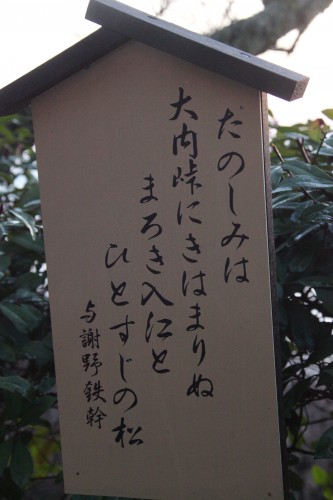 たのしみは
大内峠にきはまりぬ
まろき入江と
ひとすじの松
与謝野鉄幹